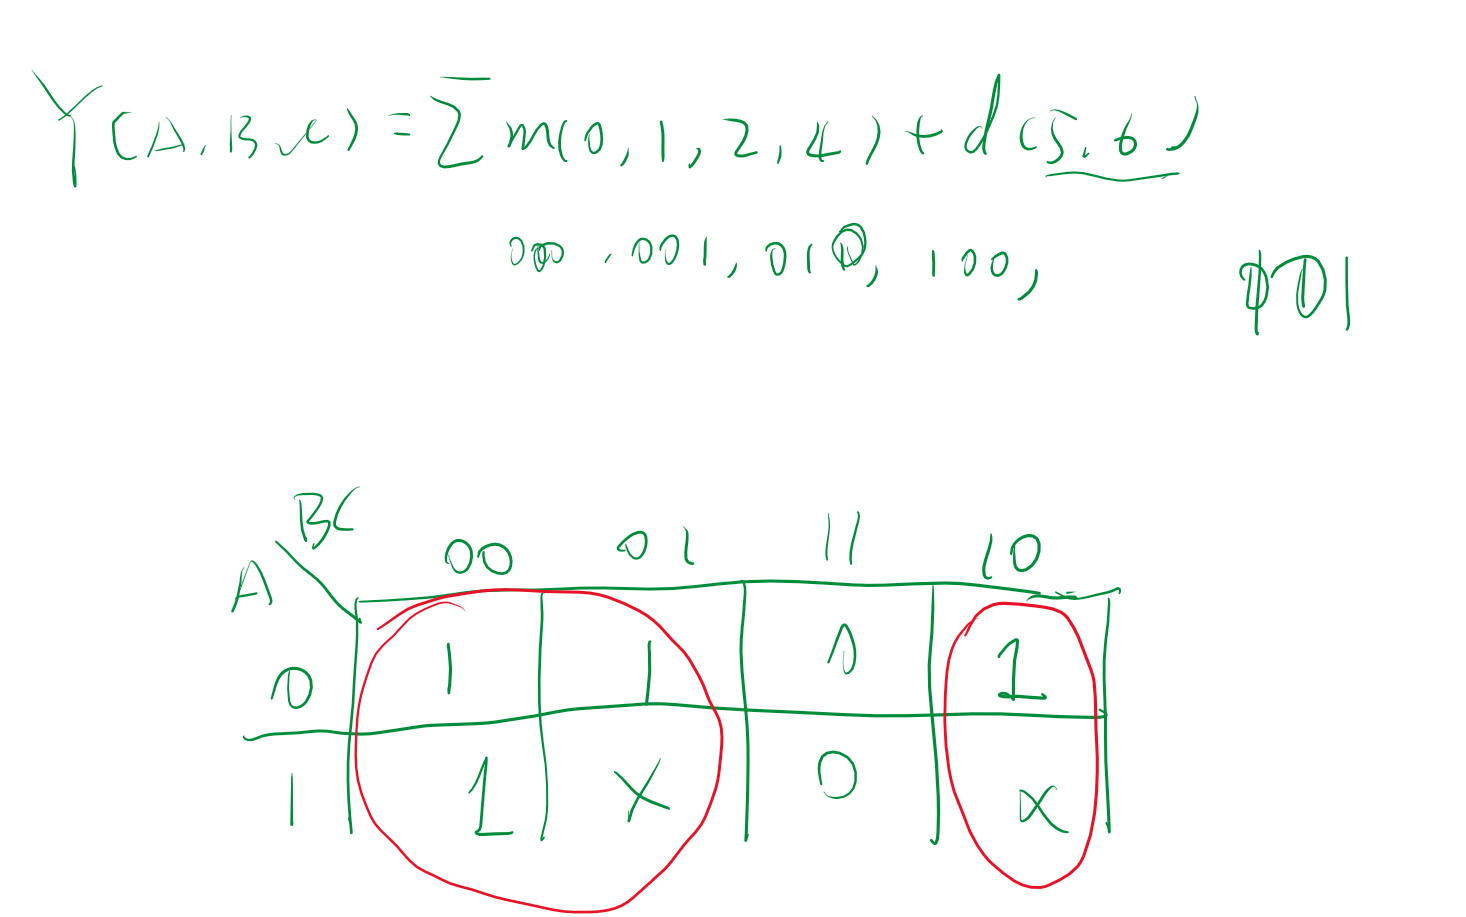 Y(A,B,C) = Σ m(0,1,2,4) + d(5,6)
000,001,010,100,
BC
A
00 01 11 10
0 1 1 0 1
1 1 x 0 x